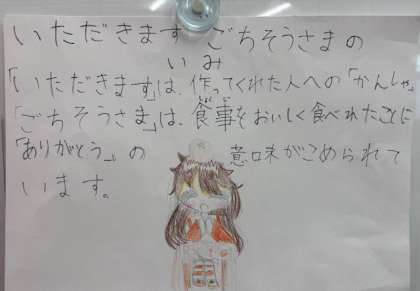 いただきます ごちそうさまの
いみ
「いただきます」は、作ってくれた人への「かんしゃ」
「ごちそうさま」は、食事をおいしく食べれたことに
「ありがとう」の 意味がこめられて
います。